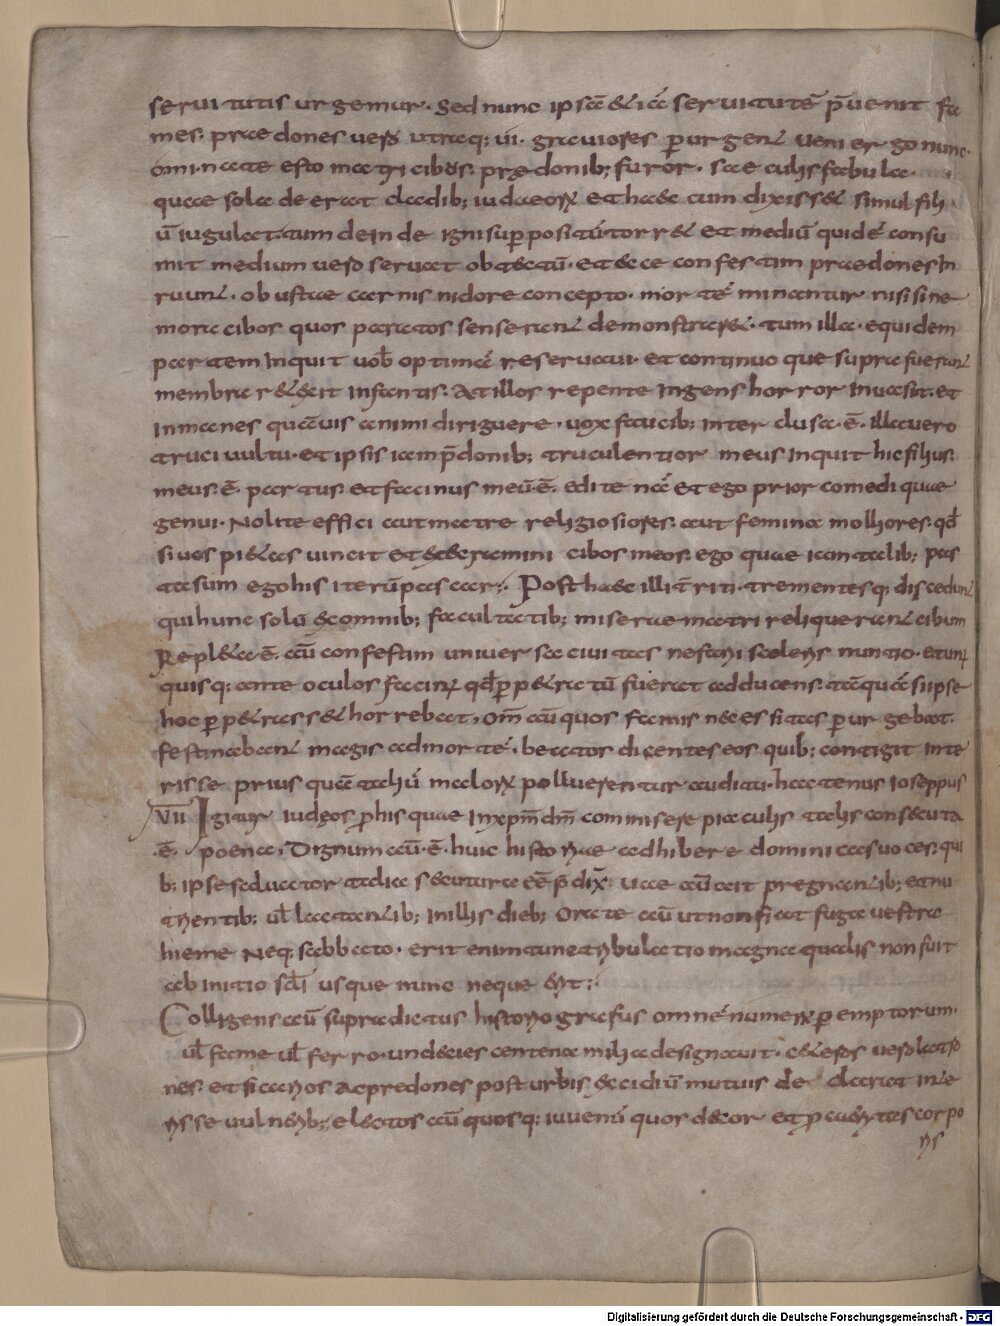 seruitutis urgemur. Sed nunc ipsā & iā seruitutē p̄uenit fa
mes. praedones uero utraq; ui. grauiores purgent. ueni ergo nunc.
o mi nate esto matri cibus. praedonib; furor. saeculis fabula.
quae sola deerat cladib; iudaeorum et haec cum dixiss& simul filiū
ū iugulat. tum deinde igni superpositū torr& et mediū quidē consu
mit medium uero seruat obtectū. et ecce confestim praedones in
ruunt. obustae carnis nidore concepto. mortē minantur nisi sine
mora cibos quos paratos senserant demonstrar&. tum illa. equidem
partem inquit uob optimā reseruaui. et continuo que supra fuerant
membra r&exit infantis. At illos repente ingens horror inuasit. et
inmanes quāuis animi diriguere. uox faucib; interclusa. ē. illa uero
truci uultu. et ipsis iam p̄donib; truculentior meus inquit hic filius.
meus. ē. partus. et facinus meū. ē. edite nā et ego prior comedi quae
genui. Nolite effici aut matre religiosiores. aut femina molliores. qd
si uos pi&as uincit et execramini cibos meos. ego quae iam talib; pas
ta sum ego his iterū pascar; Post haec illi t̄riti. trementesq; discedunt
qui hunc solū ex omnib; facultatib; miserae matri reliquerant cibum
Repl&a. ē. aū confestim uniuersa ciuitas nefarii sceleris nuntio. et un
quisq; ante oculos facinus qd perp&ratū fuerat adducens. tāquā si ipse
hoc perp&rass& horrebat. om̄ aū quos famis necessitas purgebat.
festinabant magis ad mortē. beatos dicentes eos quib; contigit inte
risse prius quā taliū malorum polluerentur auditu. hactenus ioseppus
VII Igitur iudeos p his quae in xpm dm commisere piaculis talis consecuta
.ē. poena. Dignum aū. ē. huic historiae adhibere domini eas uoces. qui
b; ipse saluator talia secutura eē p̄dix. uae aū ait pregnantib; et nu
trientib; ul lactantib; in illis dieb; Orate aū ut non fiat fuga uestra
hieme neq; sabbato. erit enim tunc tribulatio magna qualis non fuit
ab initio scli usque nunc neque erit;
Colligens aū supradictus historiografus omnē numerū peremptorum.
ul fame ul ferro. undecies centena milia designauit. c&eros uero latro
nes. et sicarios ac predones post urbis excidiū mutuis de clarat inte
risse uulnerib; electos aū quosq; iuuenū quos decor et proceritas corpo
ris
Digitalisierung gefördert durch die Deutsche Forschungsgemeinschaft - DFG